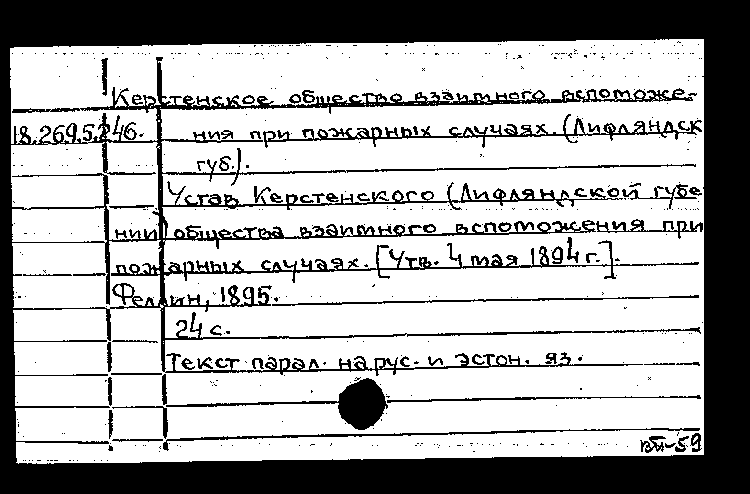 Керстенское общество взаимного вспоможе-
18.269.5.246. ния при пожарных случаях. (Лифляндск
губ.).
Устав Керстенского (Лифляндской губе
нии) общества взаимного вспоможения при
пожарных случаях. [Утв. 4 мая 1894 г.].
Феллин, 1895.
24 с.
Текст парал. на рус. и эстон. яз.